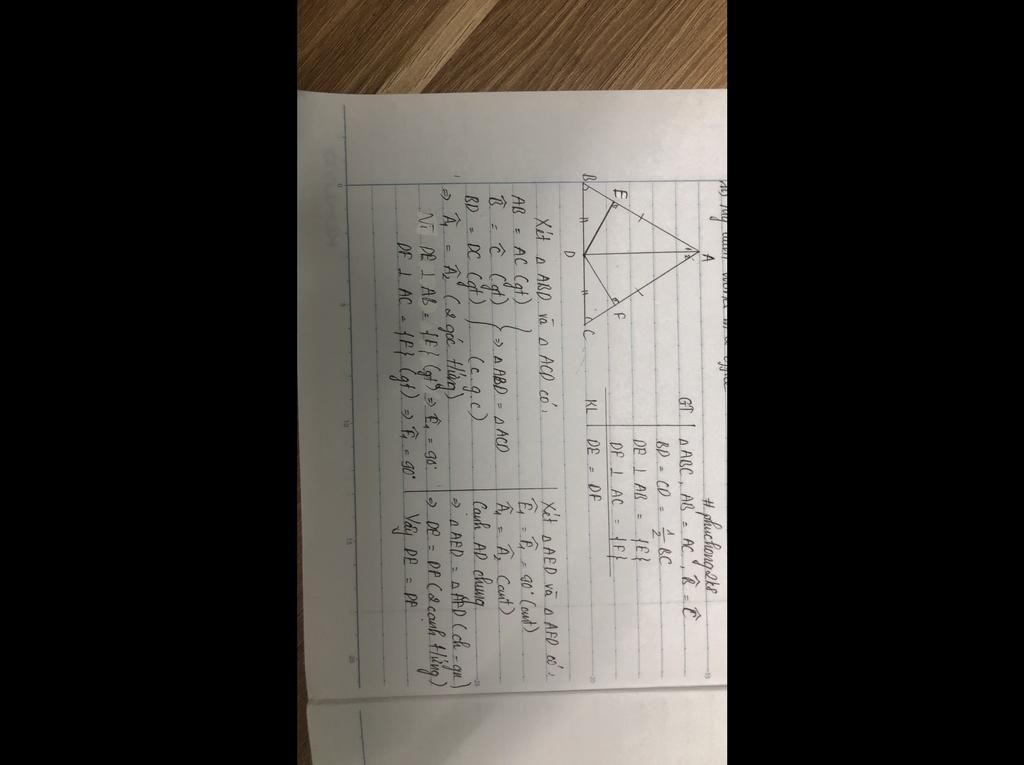 # phuchong2k8
A
1 2
E
F
B
D
C
GT
△ ABC, AB = AC, B̂ = Ĉ
BD = CD = 1/2 BC
DE ⊥ AB = {E}
DF ⊥ AC = {F}
KL
DE = DF
Xét △ ABD và △ ACD có:
AB = AC (gt)
B̂ = Ĉ (gt) } ⇒ △ ABD = △ ACD
BD = DC (gt) (c.g.c)
⇒ Â₁ = Â₂ (2 góc t/ứng)
Vì DE ⊥ AB = {E} (gt) ⇒ Ê₁ = 90°
DF ⊥ AC = {F} (gt) ⇒ F̂₁ = 90°
Xét △ AED và △ AFD có:
Ê₁ = F̂₁ = 90° (cmt)
Â₁ = Â₂ (cmt)
Cạnh AD chung
⇒ △ AED = △ AFD (ch - gn)
⇒ DE = DF (2 cạnh t/ứng)
Vậy DE = DF